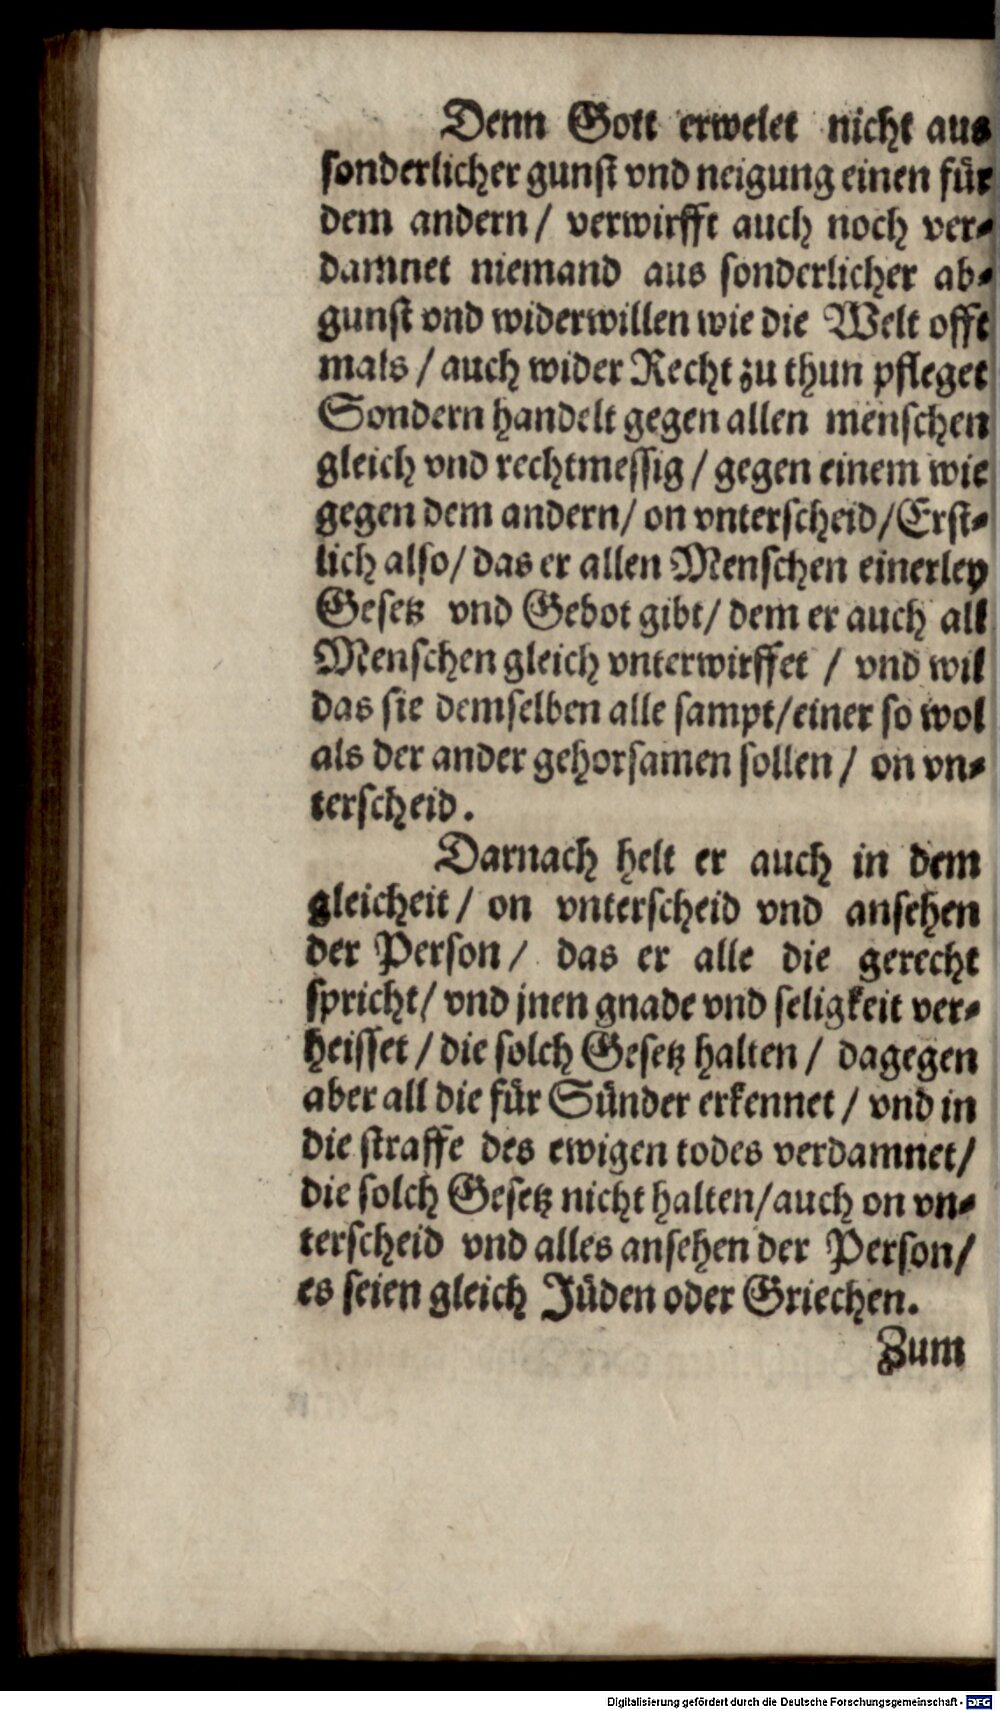 Denn Gott erwelet nicht aus
sonderlicher gunst vnd neigung einen für
dem andern / verwirfft auch noch ver-
damnet niemand aus sonderlicher ab-
gunst vnd widerwillen wie die Welt offt
mals / auch wider Recht zu thun pfleget
Sondern handelt gegen allen menschen
gleich vnd rechtmessig / gegen einem wie
gegen dem andern / on vnterscheid / Erst-
lich also / das er allen Menschen einerley
Gesetz vnd Gebot gibt / dem er auch all
Menschen gleich vnterwirffet / vnd wil
das sie demselben alle sampt / einer so wol
als der ander gehorsamen sollen / on vn-
terscheid.
Darnach helt er auch in dem
gleicheit / on vnterscheid vnd ansehen
der Person / das er alle die gerecht
spricht / vnd jnen gnade vnd seligkeit ver-
heisset / die solch Gesetz halten / dagegen
aber all die für Sünder erkennet / vnd in
die straffe des ewigen todes verdamnet /
die solch Gesetz nicht halten / auch on vn-
terscheid vnd alles ansehen der Person /
es seien gleich Jüden oder Griechen.
Zum
Digitalisierung gefördert durch die Deutsche Forschungsgemeinschaft - DFG